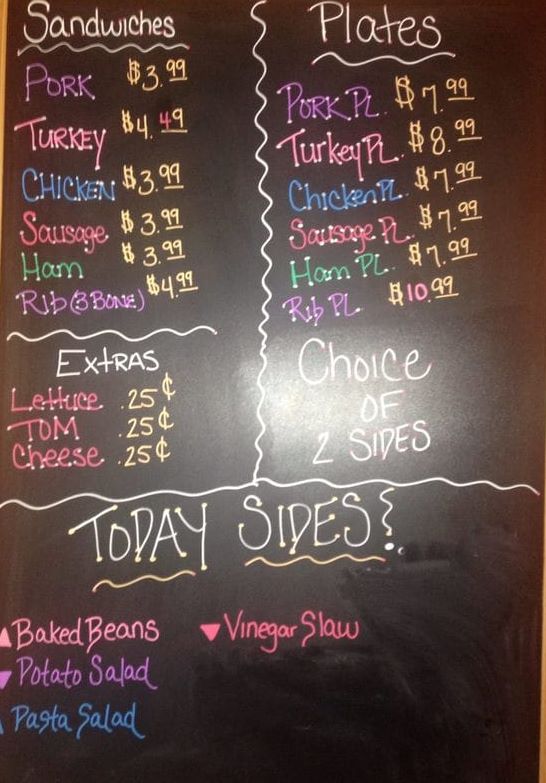 Sandwiches
PORK $3.99
TURKEY $4.49
CHICKEN $3.99
Sausage $3.99
Ham $3.99
RIB (3 BONE) $4.99
EXTRAS
Lettuce .25¢
TOM .25¢
Cheese .25¢
Plates
PORK PL. $7.99
Turkey PL. $8.99
Chicken PL. $7.99
Sausage PL. $7.99
Ham PL. $7.99
Rib PL. $10.99
Choice
OF
2 SIDES
TODAY SIDES
Baked Beans
Potato Salad
Pasta Salad
Vinegar Slaw